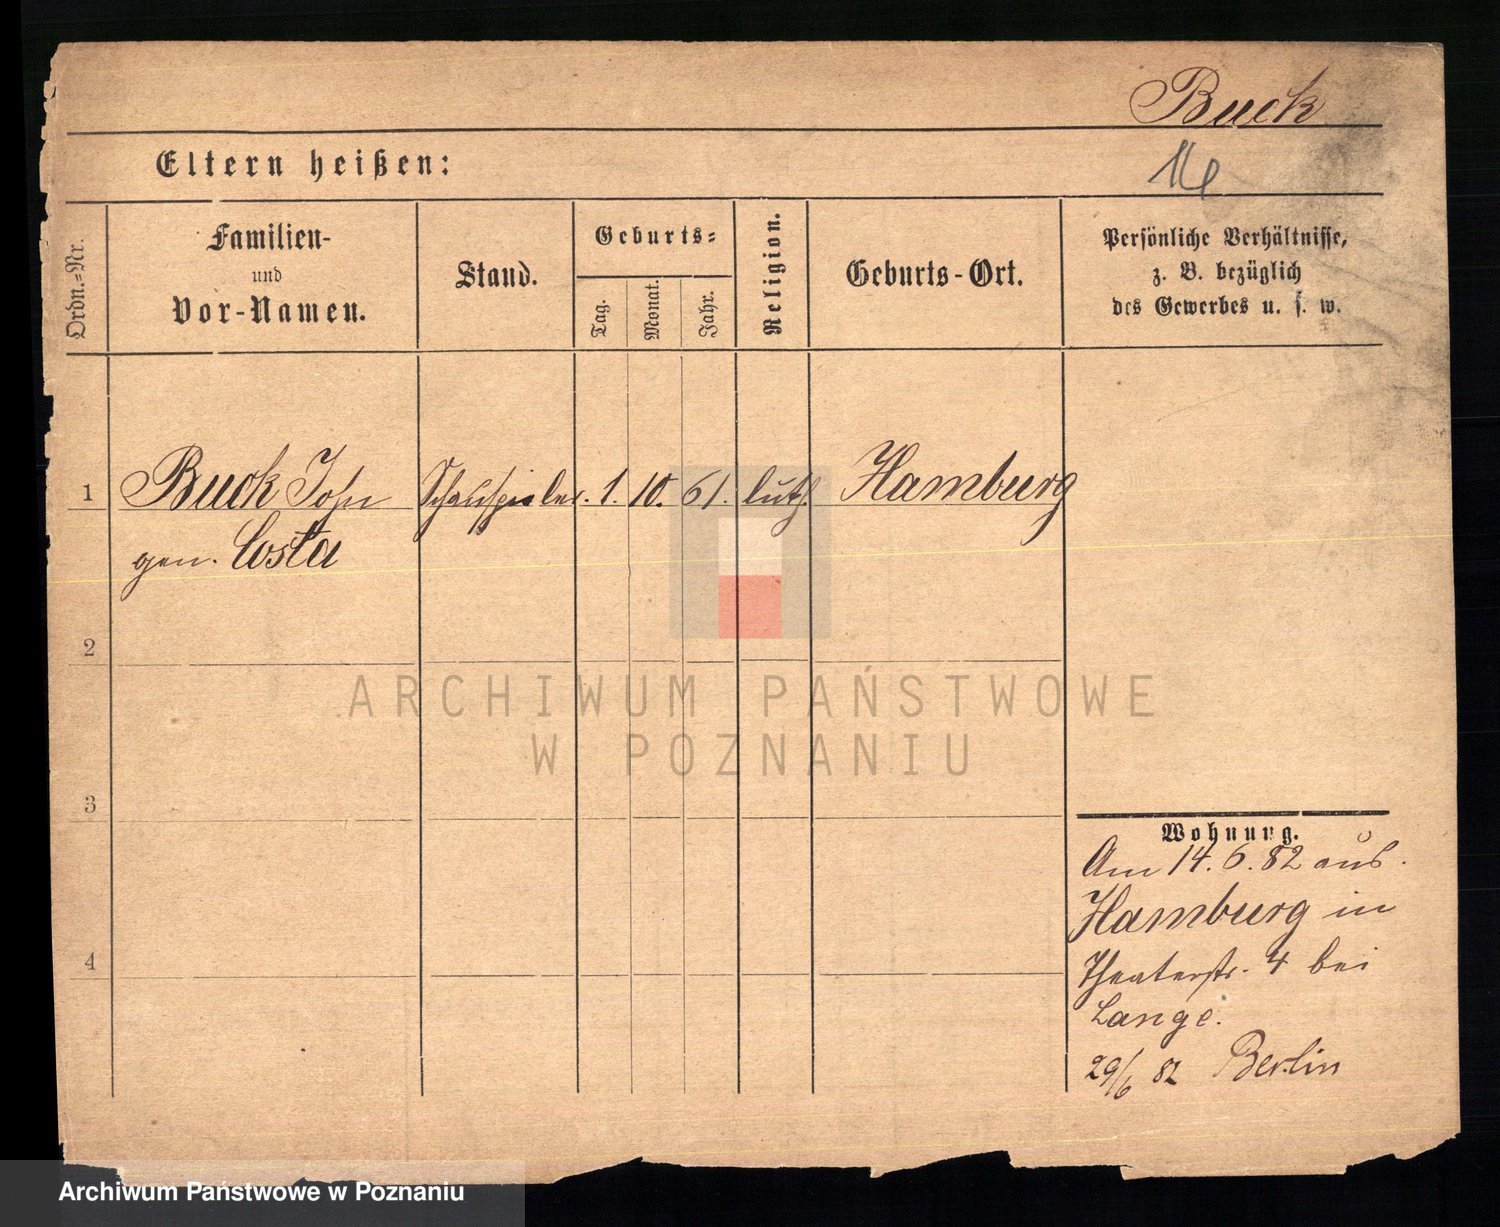 Buck
Eltern heißen:
Ordn.-Nr.
Familien-
und
Vor-Namen.
Stand.
Geburts-
Tag.
Monat.
Jahr.
Religion.
Geburts-Ort.
Persönliche Verhältnisse,
z. B. bezüglich
des Gewerbes u. s. w.
1 Buck John Schauspieler. 1. 10. 61. luth. Hamburg
gen. Costa
2
3
4
Wohnung.
Am 14. 6. 82 aus
Hamburg in
Theaterstr. 4 bei
Lange.
29/6 82 Berlin
ARCHIWUM PAŃSTWOWE
W POZNANIU
Archiwum Państwowe w Poznaniu